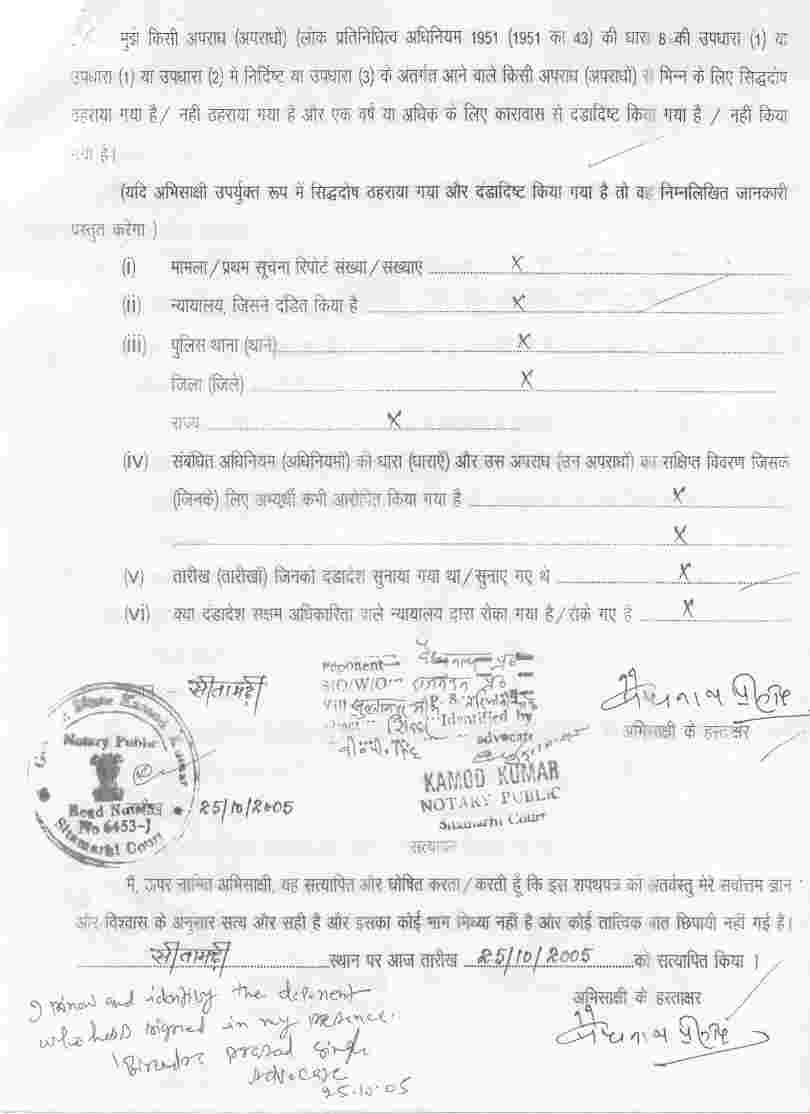 मुझे किसी अपराध (अपराधों) (लोक प्रतिनिधित्व अधिनियम 1951 (1951 का 43) की धारा 8 की उपधारा (1) या
उपधारा (1) या उपधारा (2) में निर्दिष्ट या उपधारा (3) के अंतर्गत आने वाले किसी अपराध (अपराधों) से भिन्न के लिए सिद्धदोष
ठहराया गया है / नहीं ठहराया गया है और एक वर्ष या अधिक के लिए कारावास से दंडादिष्ट किया गया है / नहीं किया
गया है।
(यदि अभिसाक्षी उपर्युक्त रूप में सिद्धदोष ठहराया गया और दंडादिष्ट किया गया है तो वह निम्नलिखित जानकारी
प्रस्तुत करेगा )
(i) मामला / प्रथम सूचना रिपोर्ट संख्या / संख्याएं X
(ii) न्यायालय, जिसने दंडित किया है X
(iii) पुलिस थाना (थाने) X
जिला (जिले) X
राज्य X
(iv) संबंधित अधिनियम (अधिनियमों) की धारा (धाराएँ) और उस अपराध (उन अपराधों) का संक्षिप्त विवरण जिसके
(जिनके) लिए अभ्यर्थी कभी आरोपित किया गया है X
X
(v) तारीख (तारीखों) जिनको दंडादेश सुनाया गया था / सुनाए गए थे X
(vi) क्या दंडादेश सक्षम अधिकारिता वाले न्यायालय द्वारा रोका गया है / रोके गए हैं X
सीतामढ़ी
Deponent
S/O/W/O
Vill
Identified by
advocate
अभिसाक्षी के हस्ताक्षर
Notary Public
Read No
No 6453-J
Sitamarhi Court
25/10/2005
KAMOD KUMAR
NOTARY PUBLIC
Sitamarhi Court
सत्यापन
मैं, ऊपर नामित अभिसाक्षी, यह सत्यापित और घोषित करता / करती हूँ कि इस शपथपत्र की अंतर्वस्तु मेरे सर्वोत्तम ज्ञान
और विश्वास के अनुसार सत्य और सही है और इसका कोई भाग मिथ्या नहीं है और कोई तात्विक बात छिपायी नहीं गई है।
सीतामढ़ी स्थान पर आज तारीख 25/10/2005 को सत्यापित किया ।
अभिसाक्षी के हस्ताक्षर
I know and identify the deponent
who has signed in my presence.
Birendra Prasad Singh
Advocate
25.10.05